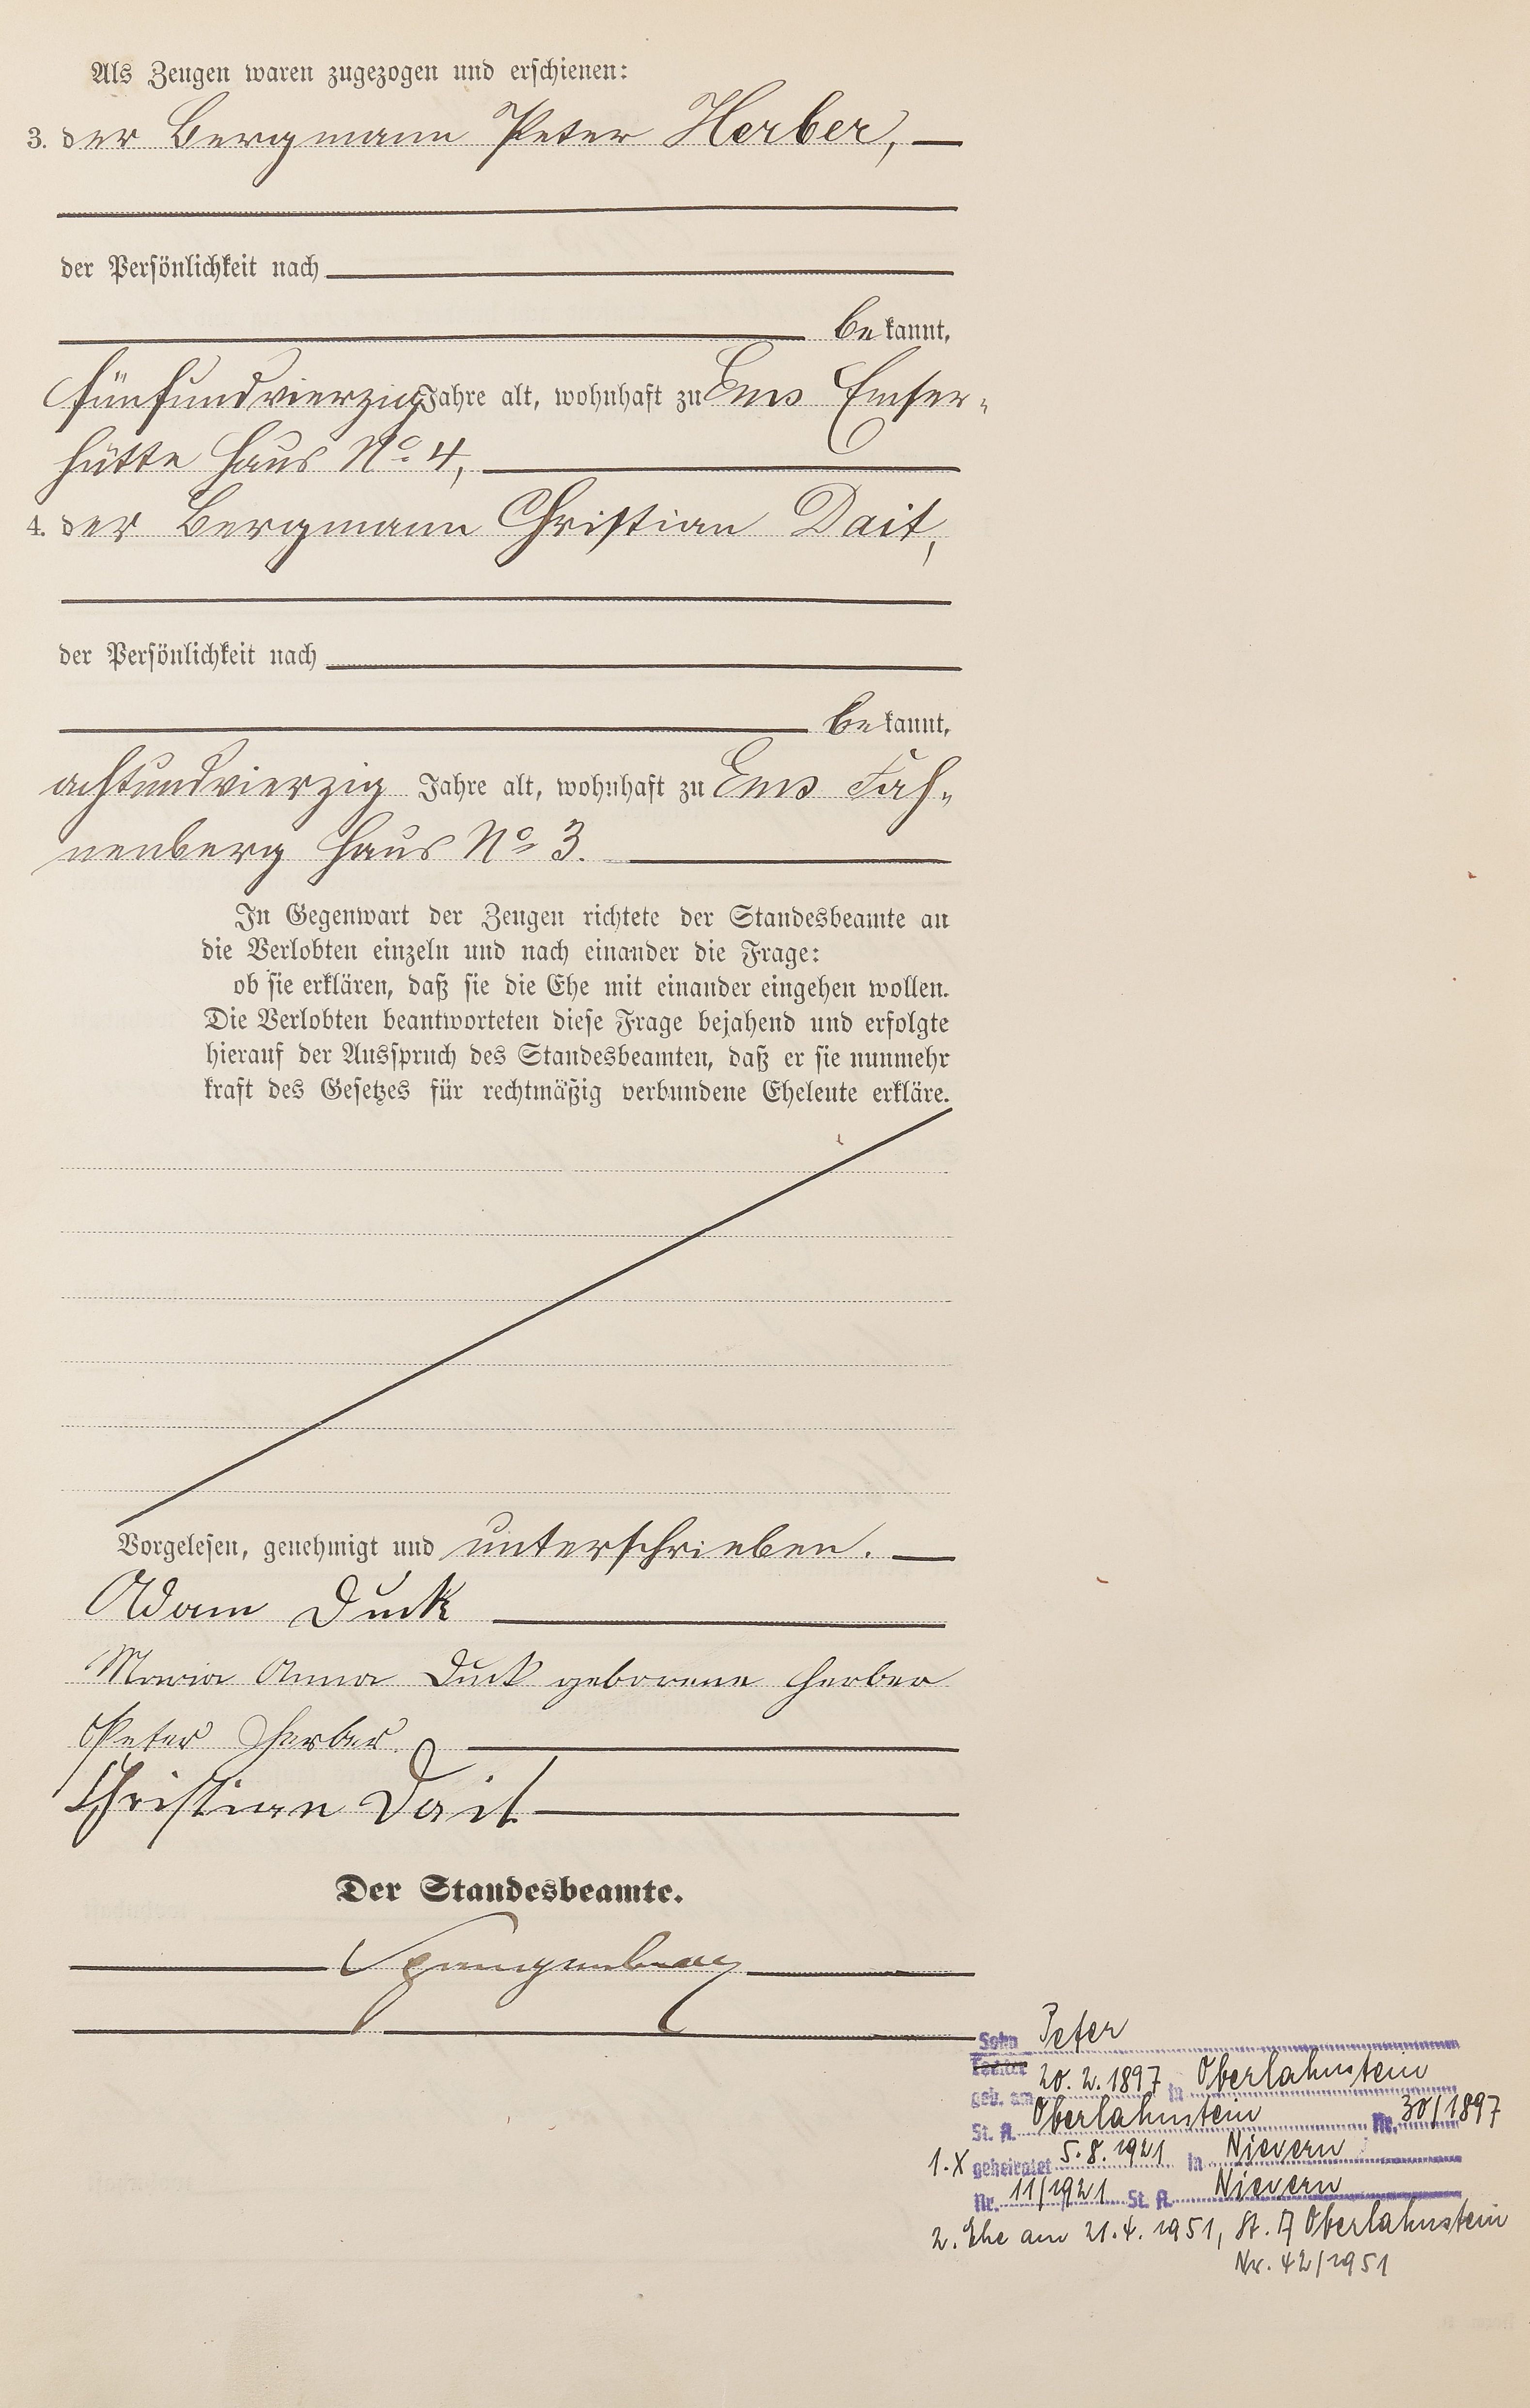 Als Zeugen waren zugezogen und erschienen:
3. der Bergmann Peter Herber,
der Persönlichkeit nach
bekannt,
fünfundvierzig Jahre alt, wohnhaft zu Ems Emser-
hütte Haus No 4,
4. der Bergmann Christian Dait,
der Persönlichkeit nach
bekannt,
achtundvierzig Jahre alt, wohnhaft zu Ems Fah-
nenberg Haus No 3.
In Gegenwart der Zeugen richtete der Standesbeamte an
die Verlobten einzeln und nach einander die Frage:
ob sie erklären, daß sie die Ehe mit einander eingehen wollen.
Die Verlobten beantworteten diese Frage bejahend und erfolgte
hierauf der Ausspruch des Standesbeamten, daß er sie nunmehr
kraft des Gesetzes für rechtmäßig verbundene Eheleute erkläre.
Vorgelesen, genehmigt und unterschrieben.
Adam Duck
Maria Anna Duck geborene Herber
Peter Herber
Christian Dait
Der Standesbeamte.
Spangenberg
Sohn Peter
Tochter
geb. am 20.2.1897 in Oberlahnstein
St. A. Oberlahnstein Nr. 30/1897
1. X geheiratet 5.8.1921 in Nievern
Nr. 11/1921 St. A. Nievern
2. Ehe am 21.4.1951, St. A Oberlahnstein
Nr. 42/1951